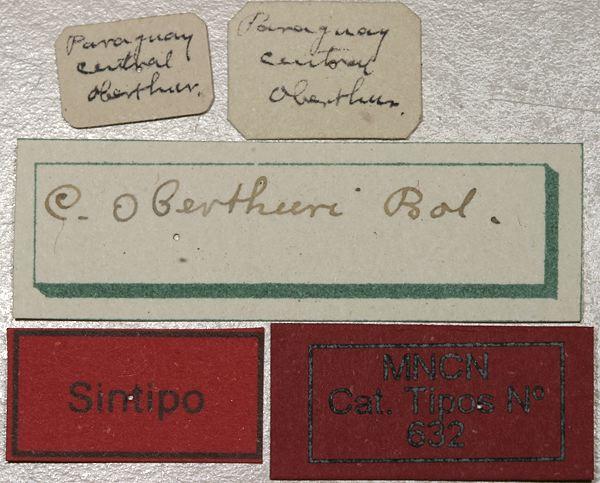 Paraguay
central
Oberthur.
Paraguay
central
Oberthur.
C. Oberthuri Bol.
Sintipo
MNCN
Cat. Tipos Nº
632